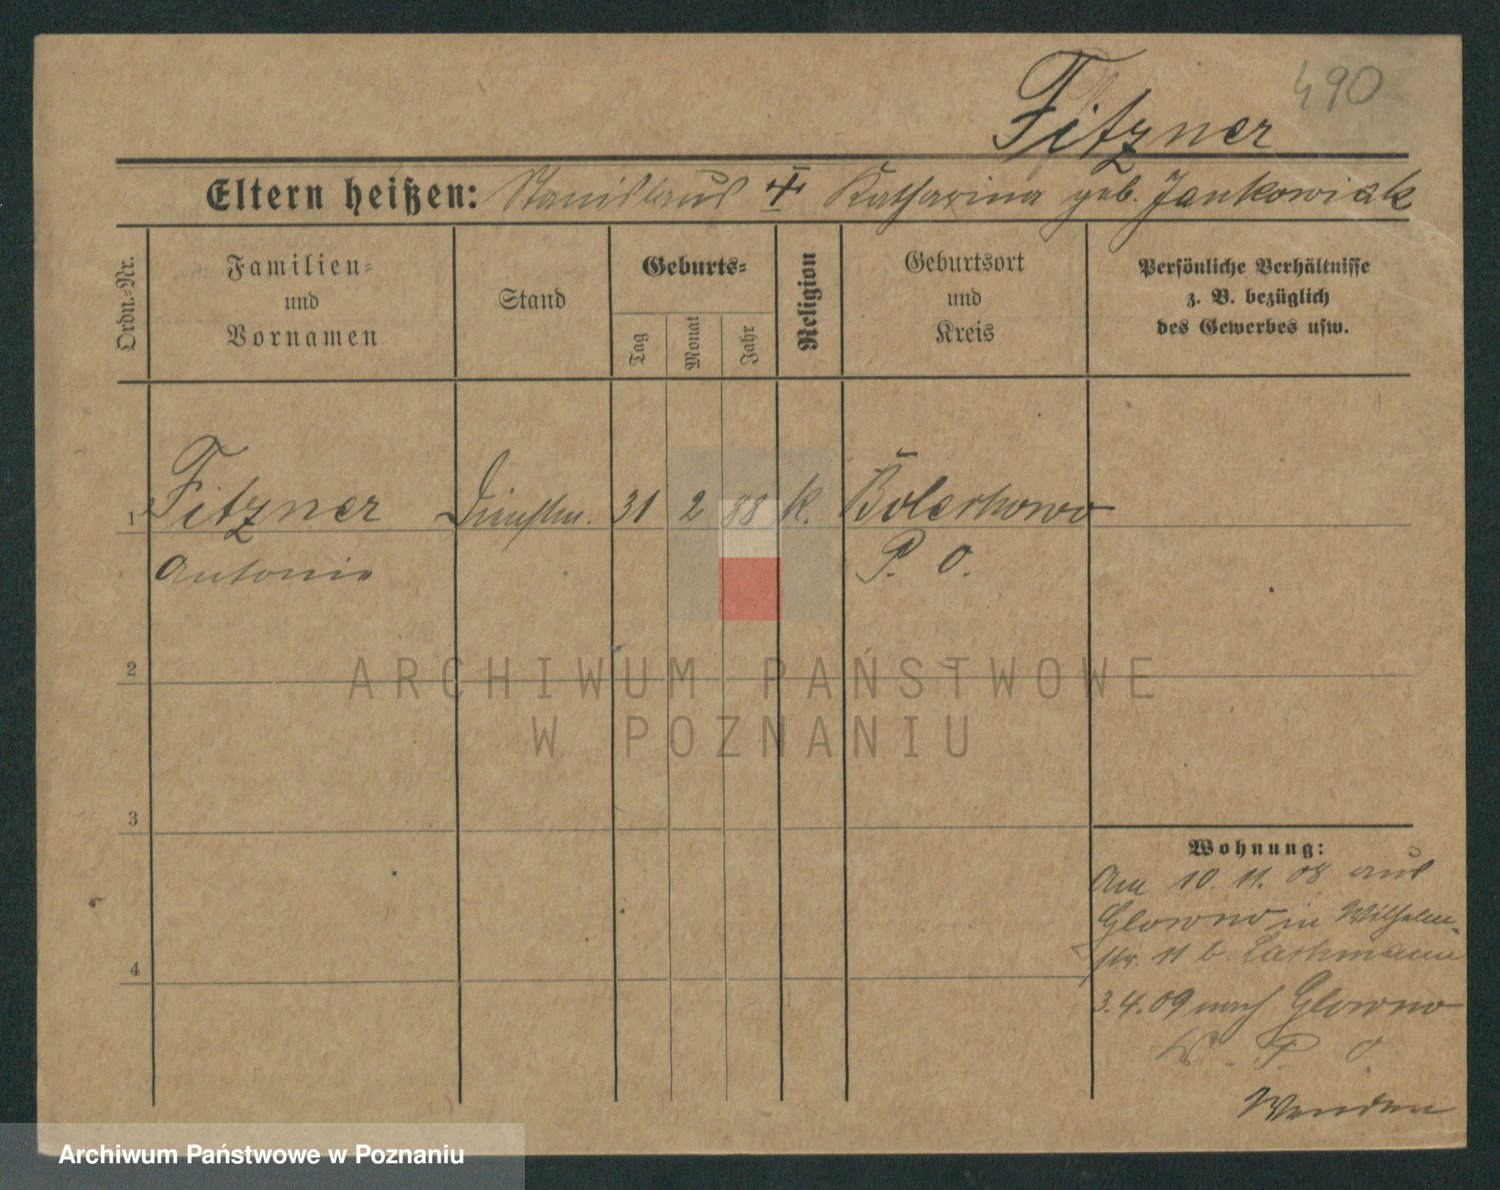 490
Fitzner
Eltern heißen: Stanislaus ‡ Katharina geb. Jankowiak
Ordn.-Nr.
Familien-
und
Vornamen
Stand
Geburts-
Tag
Monat
Jahr
Religion
Geburtsort
und
Kreis
Persönliche Verhältnisse
z. B. bezüglich
des Gewerbes usw.
1 Fitzner Dienstm. 31 2 88 k. Bolechowo
Antonie P. O.
2
ARCHIWUM PAŃSTWOWE
W POZNANIU
3
Wohnung:
Am 10. 11. 08 aus
Glowno in Wilhelm-
str. 11 b. Lachmann
4
3.4.09 nach Glowno
K. P. O.
Wenden
Archiwum Państwowe w Poznaniu